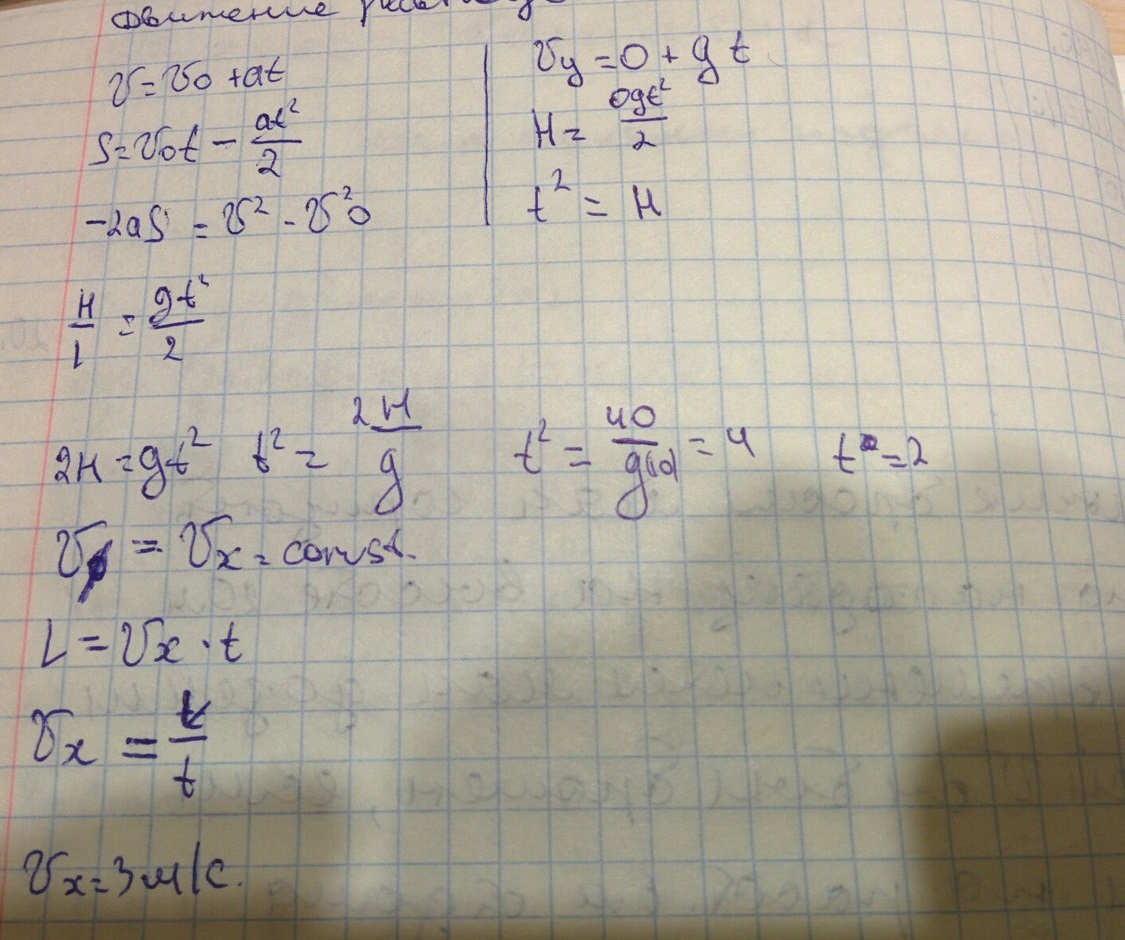 Движение
v = v₀ + at
S = v₀t − at²/2
−2aS = v² − v²₀
v_y = 0 + gt
H = 0gt²/2
t² = H
H/1 = gt²/2
2H = gt² t² = 2H/g t² = 40/g(10) = 4 t = 2
v = v_x = const.
L = v_x · t
v_x = L/t
v_x = 3 м/с.